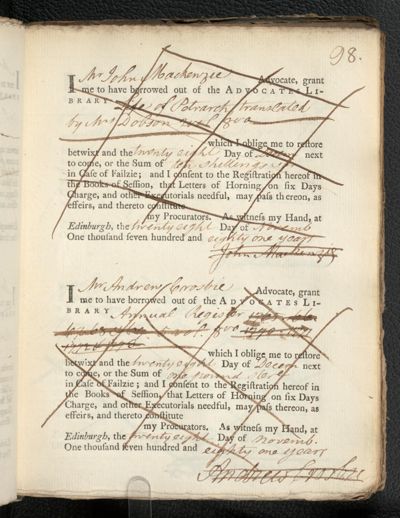 98.
I Mr John Mackenzie Advocate, grant
me to have borrowed out of the ADVOCATES LI-
BRARY Life of Petrarch translated
by Mrs Dobson 8vo
which I oblige me to restore
betwixt and the twenty eight Day of Decem next
to come, or the Sum of ten shillings
in Case of Failzie; and I consent to the Registration hereof in
the Books of Session, that Letters of Horning on six Days
Charge, and other Executorials needful, may pass thereon, as
effeirs, and thereto constitute
my Procurators. As witness my Hand, at
Edinburgh, the twenty eight Day of Novemb.
One thousand seven hundred and eighty one years
John Mackenzie
I Mr Andrew Crosbie Advocate, grant
me to have borrowed out of the ADVOCATES LI-
BRARY Annual Register
8vo
which I oblige me to restore
betwixt and the twenty eight Day of Decem next
to come, or the Sum of
in Case of Failzie; and I consent to the Registration hereof in
the Books of Session, that Letters of Horning on six Days
Charge, and other Executorials needful, may pass thereon, as
effeirs, and thereto constitute
my Procurators. As witness my Hand, at
Edinburgh, the twenty eight Day of Novemb.
One thousand seven hundred and eighty one years
Andrew Crosbie